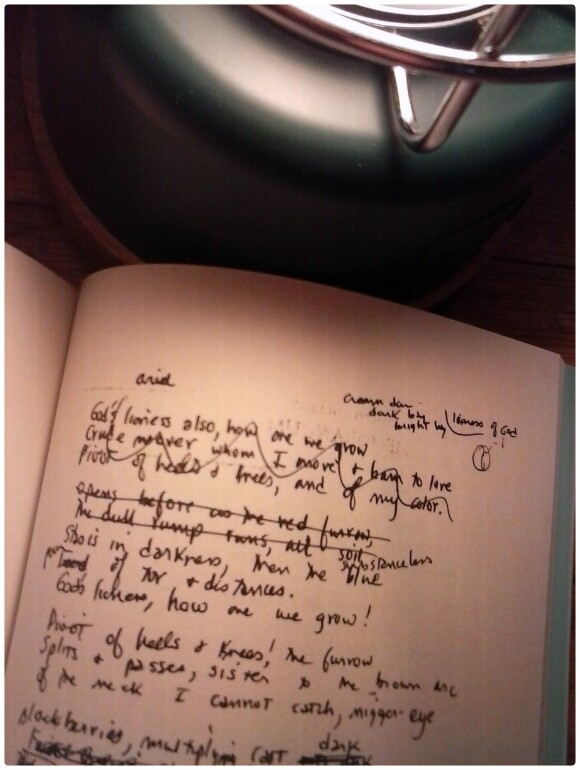 ariel
dark by
bright by lioness of God
God's lioness also, how one we grow
Crude mover whom I move & burn to love
Pivot of heels & knees, and of my color.
Opens before us the red furrow,
The dull rump runs, all soil
Stasis in darkness, then the substanceless blue
Pour of tor & distances.
God's lioness, how one we grow!
Pivot of heels & knees! The furrow
Splits & passes, sister to the brown arc
Of the neck I cannot catch, nigger-eye
Blackberries, cast dark